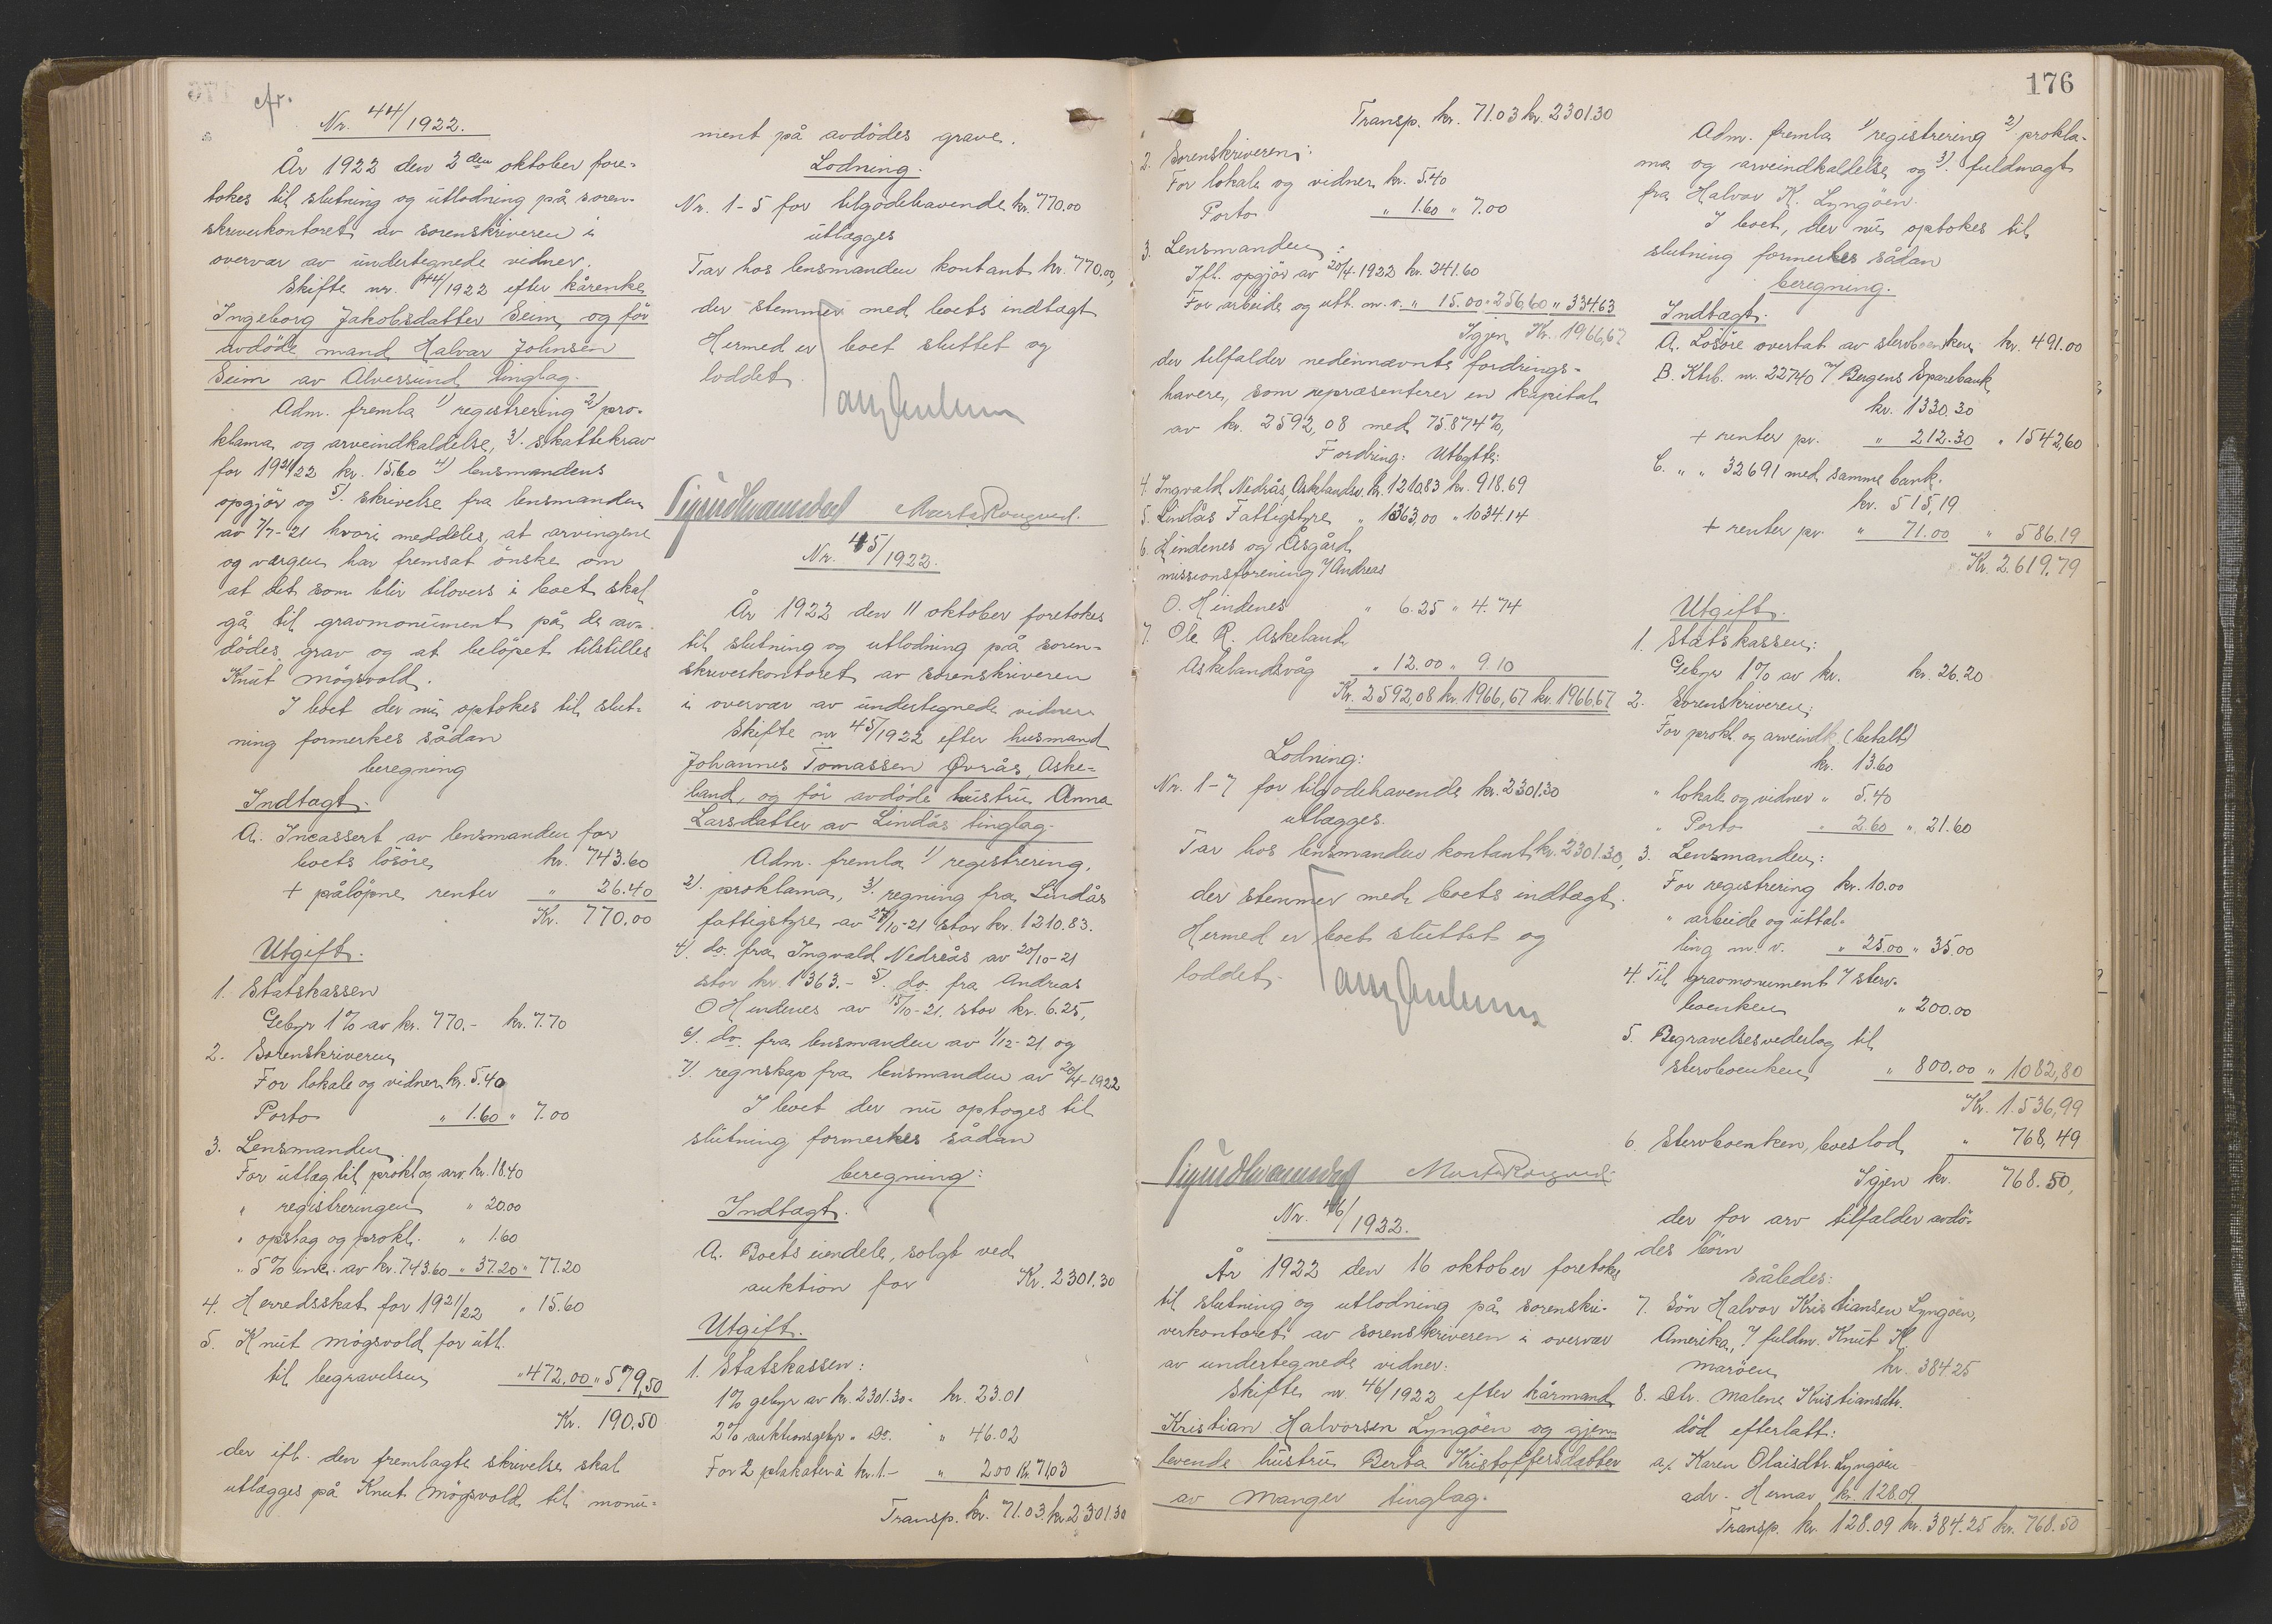 cfr.
Nr. 44/1922.
År 1922 den 2den oktober fore-
tokes til slutning og utlodning på soren-
skriverkontoret av sorenskriveren i
overvær av undertegnede vidner.
Skifte nr. 44/1922 efter kårenke
Ingeborg Jakobsdatter Seim, og før
avdöde mand Halvar Johnsen
Seim av Alversund tinglag.
Adm. fremla 1) registrering 2) pro-
klama og arveindkaldelse, 3). skattekrav
for 1921/22 kr. 15.60 4) lensmandens
opgjör og 5). skrivelse fra lensmanden
av 7/7-21 hvori meddeles, at arvingene
og værgen har fremsat önske om
at det som blir tilovers i boet skal
gå til gravmonument på de av-
dödes grav og at belöpet tilstilles
Knut Mögsvold.
I boet der nu optokes til slut-
ning formerkes sådan
beregning
Indtægt.
A. Incassert av lensmanden for
boets lösöre kr. 743.60
+ pålöpne renter " 26.40
Kr. 770.00
Utgift.
1. Statskassen
Gebyr 1% av kr. 770.- kr. 7.70
2. Sorenskriveren
For lokale og vidner kr. 5.40
Porto " 1.60 " 7.00
3. Lensmanden
For utlæg til prokl og arv. kr. 18.40
" registreringen " 20.00
" opslag og prokl. " 1.60
" 5% ink. av kr. 743.60 " 37.20 " 77.20
4. Herredsskat for 1921/22 " 15.60
5. Knut Mögsvold for utl.
til begravelsen " 472,00 " 579,50
Kr. 190.50
der ifl. den fremlagte skrivelse skal
utlægges på Knut Mögsvold til monu-
ment på avdödes grave.
Lodning.
Nr. 1-5 for tilgodehavende kr. 770.00
utlægges
Tar hos lensmanden kontant kr. 770.00,
der stemmer med boets indtægt
Hermed er boet sluttet og
loddet.
Marta Rongved.
Nr. 45/1922.
År 1922 den 11 oktober foretokes
til slutning og utlodning på soren-
skriverkontoret av sorenskriveren
i overvær av undertegnede vidner
Skifte nr 45/1922 efter husmand
Johannes Tomassen Øvrås, Aske-
land, og för avdöde hustru Anna
Larsdatter av Lindås tinglag.
Adm. fremla 1) registrering,
2). proklama, 3). regning fra Lindås
fattigstyre av 27/10-21 stor kr. 1210.83.
4). do. fra Ingvald Nedreås av 20/10-21
stor kr. 1363.- 5). do. fra Andreas
O Hindenes av 15/10-21. stor kr. 6.25,
6). do. fra lensmanden av 1/12-21 og
7). regnskap fra lensmanden av 20/4-1922
I boet der nu optoges til
slutning formerkes sådan
beregning:
Indtægt.
A. Boets eiendele, solgt ved
auktion for Kr. 2301.30
Utgift.
1. Statskassen:
1% gebyr av kr. 2301.30- kr. 23.01
2% auktionsgebyr " Do. " 46.02
For 2 plakater à kr. 1.- " 2.00 Kr. 71,03
Transp. kr. 71.03. kr. 2301.30
176
Transp. kr. 71.03 kr. 2301.30
2. Sorenskriveren:
For lokale og vidner kr. 5.40
Porto " 1.60 " 7.00
3. Lensmanden:
Ifl. opgjör av 20/4-1922 kr. 241.60
For arbeide og utl. m.v. " 15.00 " 256,60 " 334.63
Igjen Kr. 1966,67
der tilfalder nedennævnte fordrings-
havere, som repræsenterer en kapital
av kr. 2592,08 med 75.874%,
Fordring: Utbytte:
4. Ingvald Nedrås, Askelandsv. kr. 1210.83 kr. 918.69
5. Lindås Fattigstyre " 1363,00 " 1034.14
6. Hindenes og Åsgård
missionsforening v/ Andreas
O. Hindenes " 6.25 " 4.74
7. Ole R. Askeland
Askelandsvåg " 12.00 " 9.10
Kr. 2592,08 kr. 1966,67 kr. 1966.67
Lodning:
Nr. 1-7 for tilgodehavende kr. 2301.30
utlægges.
Tar hos lensmanden kontant kr. 2301.30,
der stemmer med boets indtægt.
Hermed er boet sluttet og
loddet.
Marta Rongved.
Nr. 46/1922.
År 1922 den 16 oktober foretokes
til slutning og utlodning på sorenskri-
verkontoret av sorenskriveren i overvær
av undertegnede vidner:
Skifte nr. 46/1922 efter kårmand
Kristian Halvorsen Lyngöen og gjen-
levende hustru Berta Kristoffersdatter
av Manger tinglag.
Adm. fremla 1) registrering 2) prokla-
ma og arveindkaldelse og 3). fuldmagt
fra Halvor K. Lyngöen.
I boet, der nu optokes til
slutning formerkes sådan
beregning.
Indtægt.
A. Lösöre overtat av stervboenken kr. 491.00
B. Ktrb. nr. 22740 m/ Bergens Sparebank
kr. 1330.30
+ renter pr. " 212.30 " 1542,60
C. " " 32691 med samme bank.
kr. 515,19
+ renter pr. " 71.00 " 586.19
Kr. 2.619,79
Utgift.
1. Statskassen:
Gebyr 1% av kr. kr. 26.20
2. Sorenskriveren:
For prokl. og arveindk. (betalt)
kr. 13.60
" lokale og vidner " 5.40
" Porto " 2.60 " 21.60
3. Lensmanden:
For registrering kr. 10.00
" arbeide og uttæl-
ling m. v. " 25.00 " 35.00
4. Til gravmonument v/ sterv-
boenken " 200.00
5. Begravelsesvederlag til
stervboenken " 800.00 " 1082,80
Kr. 1.536,99
6. Stervboenken, boeslod " 768,49
Igjen kr. 768.50,
der for arv tilfalder avdö-
des börn
således:
7. Sön Halvor Kristiansen Lyngöen,
Amerika, v/ fuldm. Knut K
Maröen kr. 384.25
8. Dtr. Malene Kristiansdtr.
död efterlatt:
a/. Karen Olaisdtr. Lyngöen
adr. Hernar kr. 128.09
Transp. kr. 128.09 kr. 384.25 kr. 768.50